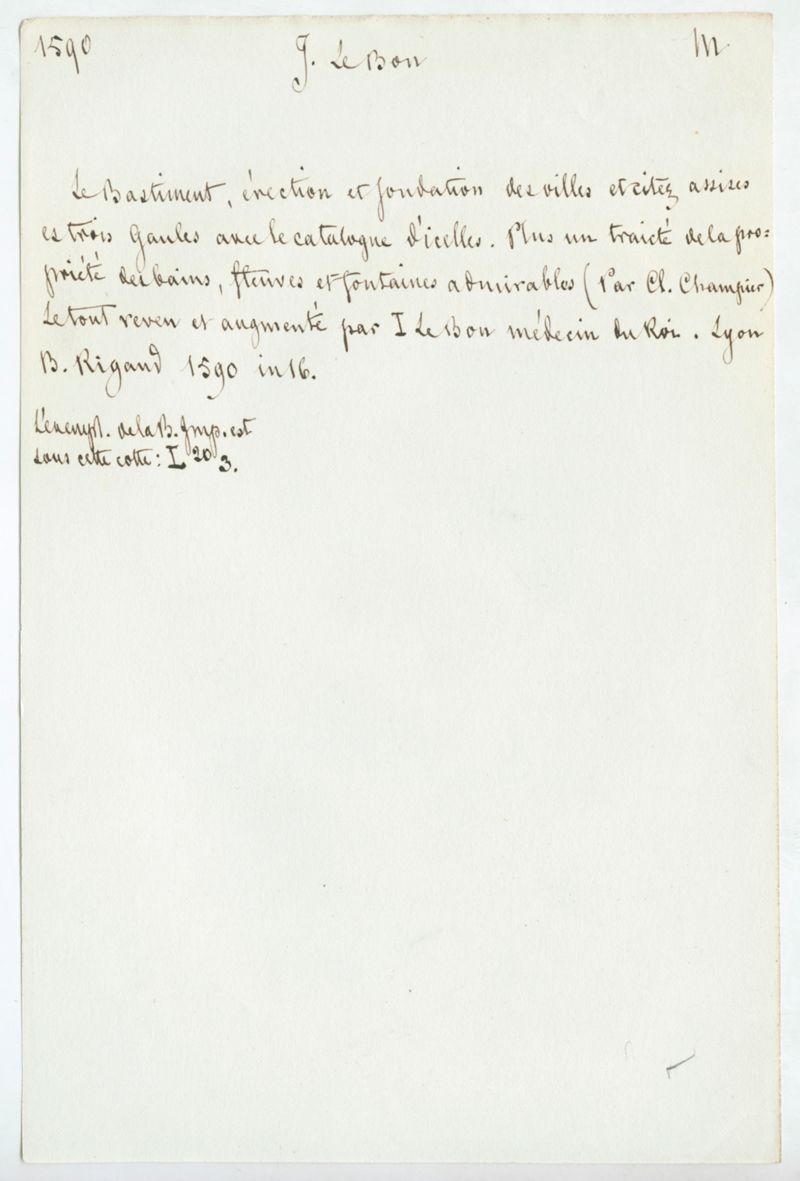 1590 J. Le Bon M
Le Bastiment, érection et fondation des villes et citez assises
es trois Gaules avec le catalogue d'icelles. Plus un traicté de la pro=
priété des bains, fleuves et fontaines admirables (Par Cl. Champier)
Le tout reveu et augmenté par I Le Bon médecin du Roi. Lyon
B. Rigaud 1590 in 16.
L'exempl. de la B. Imp. est
sous cette cotte : L 20 3.